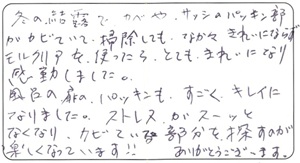 冬の結露で、かべや、サッシのパッキン部
がカビていて、掃除しても、なかなかきれいにならず
モルクリアを、使ったら、とても、きれいになり
感動しました。
風呂の扉の、パッキンも、すごく、キレイに
なりました。ストレスがスーッと
なくなり、カビている部分を探すのが
楽しくなっています!! ありがとうございます。